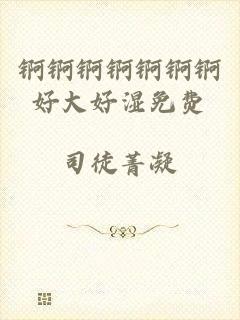 锕锕锕锕锕锕锕
好大好湿免费
司徒菁凝